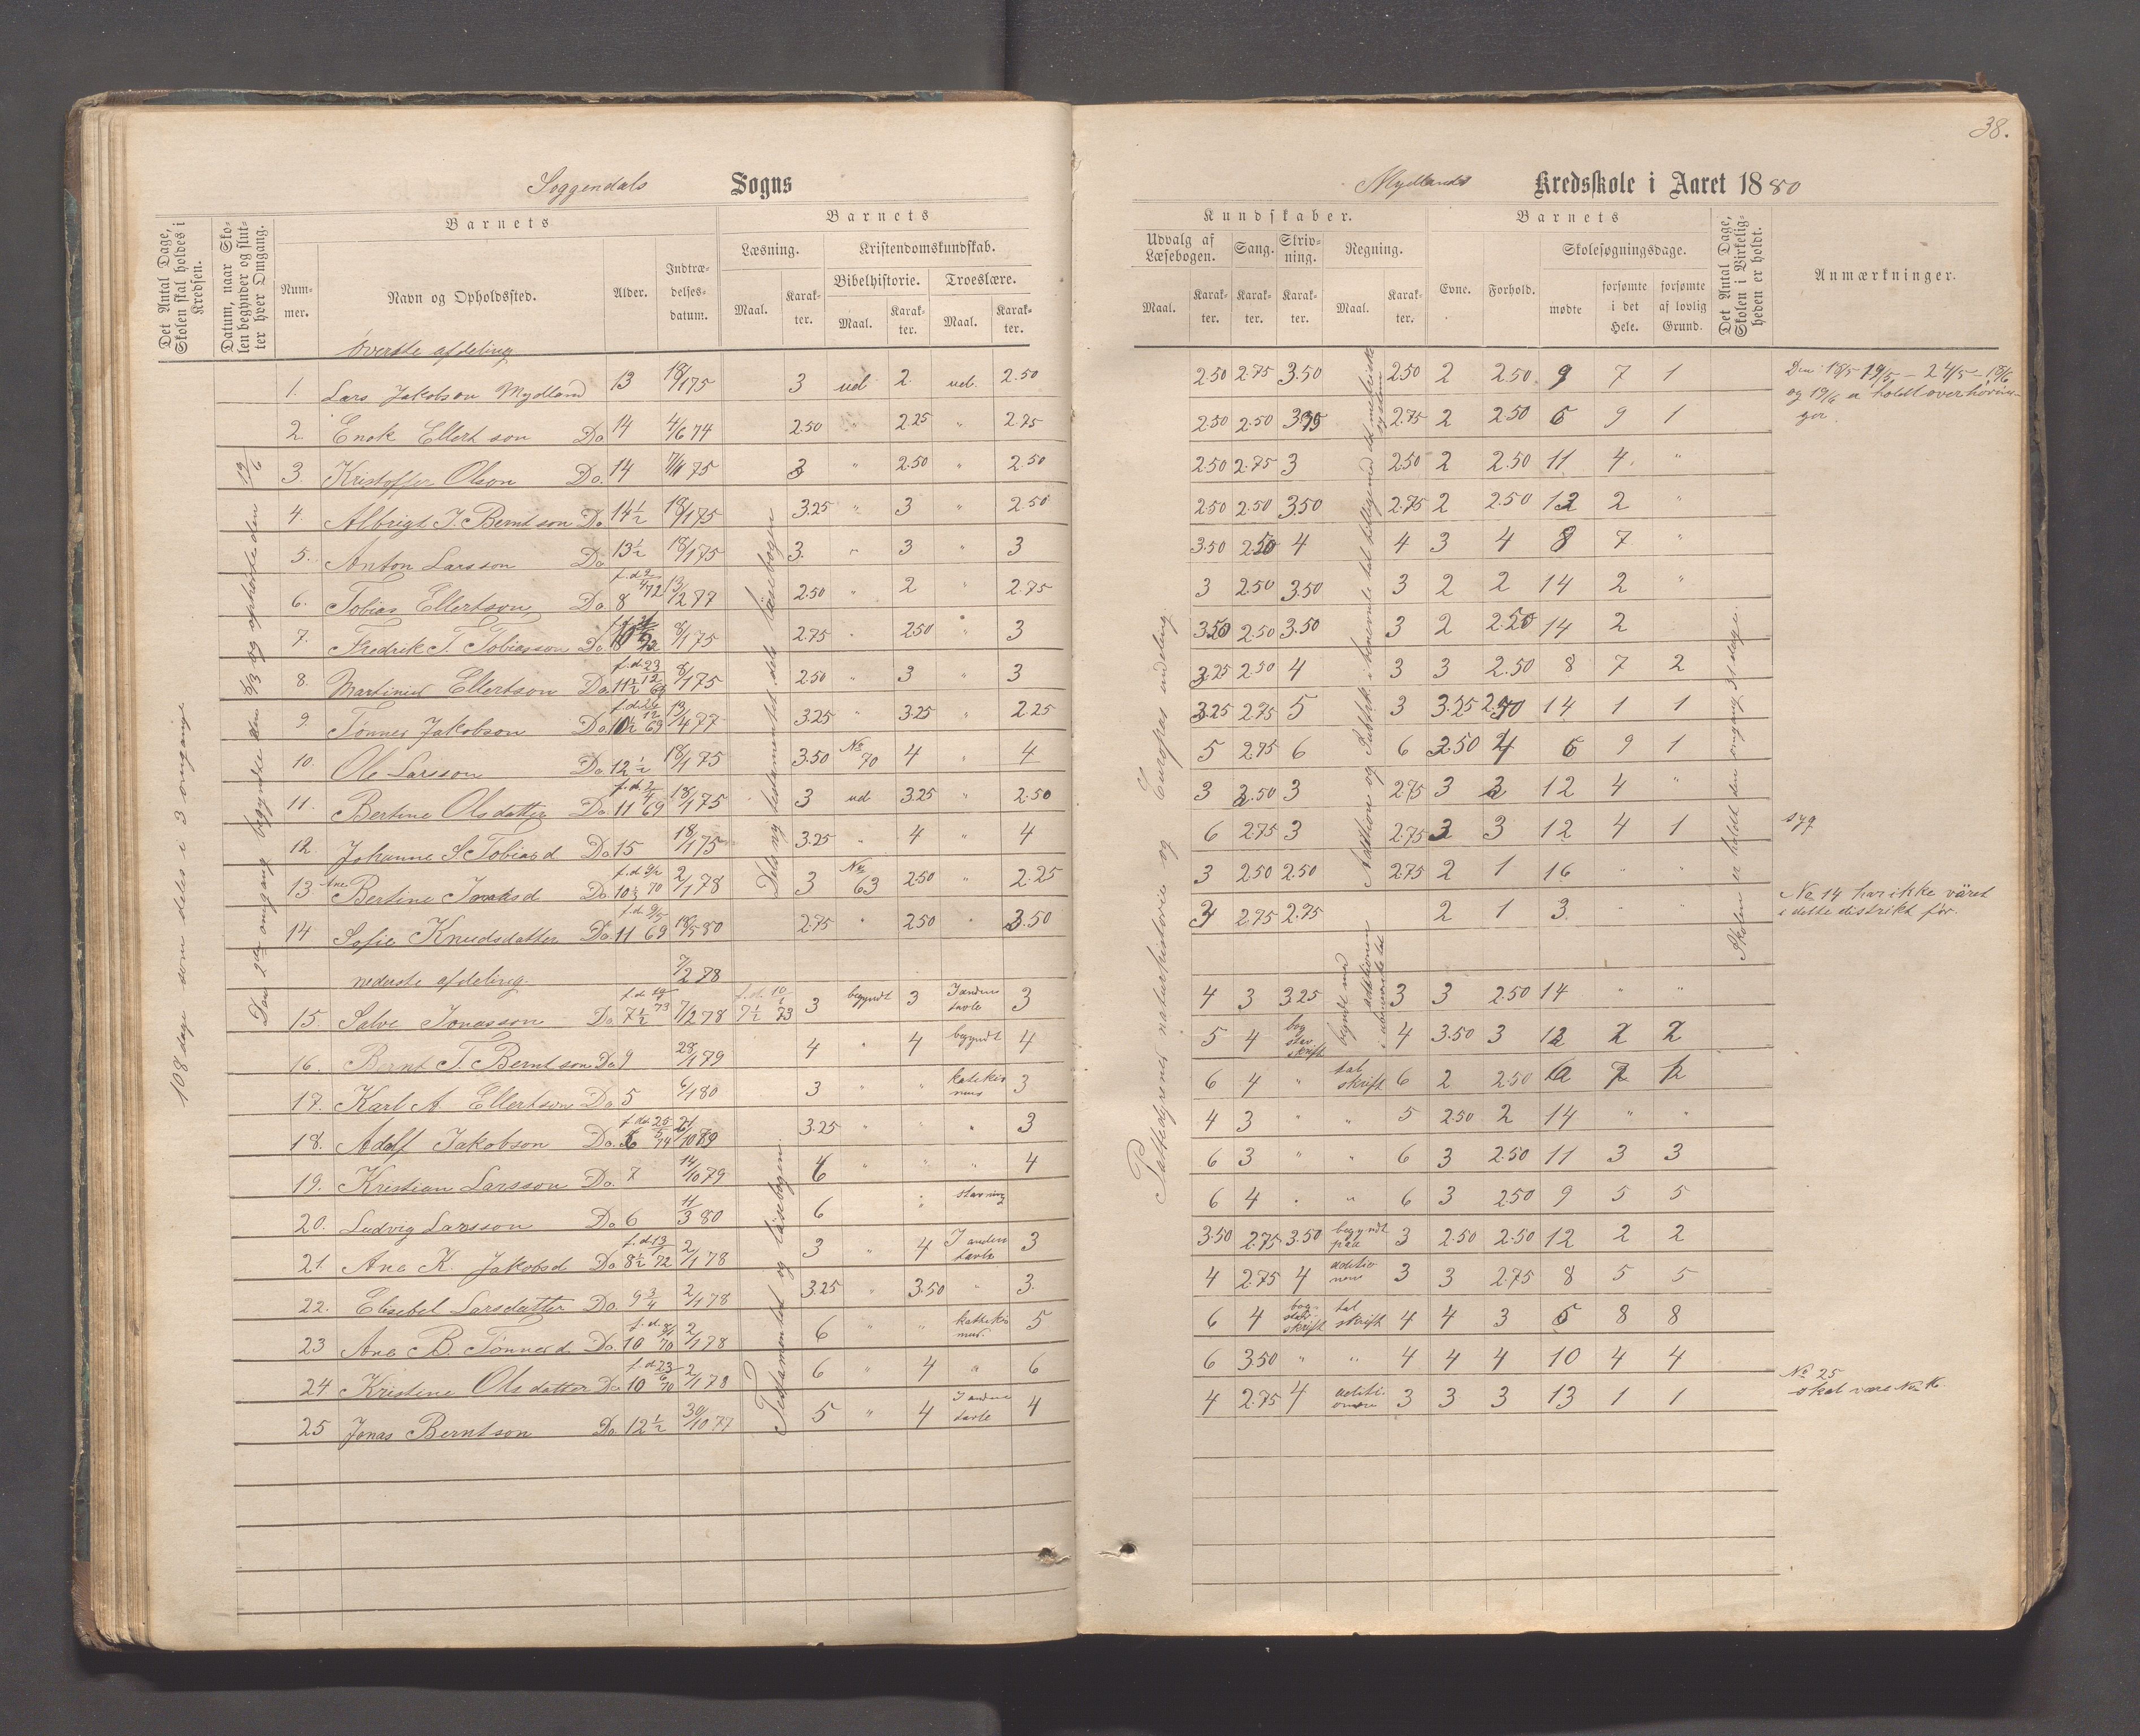 38.
Soggendals Sogns
Mydlands Kredsskole i Aaret 1880
Det Antal Dage, Skolen skal holdes i Kredsen.
Datum, naar Skolen begynder og slutter hver Omgang.
Barnets
Nummer.
Navn og Opholdssted.
Alder.
Indtrædelsesdatum.
Barnets
Læsning.
Kristendomskundskab.
Bibelhistorie.
Troeslære.
Maal.
Karakter.
Maal.
Karakter.
Maal.
Karakter.
Kundskaber.
Udvalg af Læsebogen.
Sang.
Skrivning.
Regning.
Maal.
Karakter.
Karakter.
Karakter.
Maal.
Karakter.
Barnets
Evne.
Forhold.
Skolesøgningsdage.
mødte
forsømte i det Hele.
forsømte af lovlig Grund.
Det Antal Dage, Skolen i Virkeligheden er holdt.
Anmærkninger.
108 dage som deles i 3 omgange
Den 2den omgang begyndte den 8/3 og ophørte den 19/6
Dels ny testamentet dels läsebogen
Testamentet og läsebogen
Pattedyrenes naturhistorie og Europas indeling
Skolen er holdt den omgang dage.
øverste afdeling
1. Lars Jakobson Mydland 13 18/1 75 3 ud 2. ud. 2.50 2.50 2.75 3.50 2.50 2 2.50 9 7 1
2. Enok Ellertson Do 14 4/6 74 2.50 " 2.25 " 2.75 2.50 2.50 2.75 2 2.50 6 9 1
3. Kristoffer Olson Do. 14 75 3 " 2.50 " 2.50 2.50 2.75 3 2.50 2 2.50 11 4 "
4. Albrigt T. Berntson Do 14½ 18/1 75 3.25 " 3 " 2.50 2.50 2.50 3.50 2.75 2 2.50 12 2 "
5. Anton Larsson Do 13½ 18/1 75 3 " 3 " 3 3.50 2.50 4 4 3 4 8 7 "
6. Tobias Ellertson Do 8 f.d. 2/4 72 13/2 77 2.50 " 2 " 2.75 3 2.50 3.50 3 2 2 14 2 "
7. Fredrik T. Tobiasson Do. 8/1 75 2.75 " 2.50 " 3 3.50 2.50 3.50 3 2 2.25 14 2
8. Martinius Ellertson Do. 11½ f.d. 23/12 69 8/1 75 2.50 " 3 " 3 3.25 2.50 4 3 3 2.50 8 7 2
9. Tønnes Jakobson Do. 10½ 69 13/4 77 3.25 " 3.25 " 2.25 3.25 2.75 5 3 3.25 2.50 14 1 1
10. Ole Larsson Do 12½ 18/1 75 3.50 No 70 4 " 4 5 2.75 6 6 3.50 4 6 9 1
11. Bertine Olsdatter Do. 11 f.d. 2/4 69 18/1 75 3 ud 3.25 " 2.50 3 2.50 3 2.75 3 3 12 4 "
12. Johanne S Tobiasd Do 15 18/1 75 3.25 " 4 " 4 6 2.75 3 2.75 3 3 12 4 1 syg
13. Ane Bertine Do f.d. 70 2/1 78 3 No 63 2.50 " 2.25 3 2.50 2.50 2.75 2 1 16 " "
14 Sofie Knudsdatter Do. 11 f.d. 9/5 69 18/5 80 2.75 " 2.50 " 3.50 3 2.75 2.75 2 1 3 " "
nederste afdeling. 7/2 78
15. Salve Jonasson Do 7½ 73 7/2 78 f.d. 10/1 7½ 73 3 begyndt 3 I anden tavle 3 4 3 3.25 3 3 2.50 14 " "
16. Bernt T. Berntson Do 9 28/1 79 4 " 4 begyndt 4 5 4 bogstavskrift 4 3.50 3 12 2 2
17. Karl A. Ellertson Do 5 6/1 80 3 " " katekismus 3 6 4 " talskrift 6 2 2.50
18. Adolf Jakobson Do. 6 f.d. 25/5 74 3.25 " " " 3 4 3 " " 5 2.50 2 14 " "
19. Kristian Larsson Do. 7 14/10 79 6 " " " 4 6 3 " " 6 3 2.50 11 3 3
20. Ludvig Larsson Do 6 11/3 80 6 " stavning 6 4 " " 6 3 2.50 9 5 5
21. Ane K. Jakobsd Do 8½ f.d. 13/1 72 2/1 78 3 " 4 I anden tavle 3 3.50 2.75 3.50 begyndt paa 3 2.50 2.50 12 2 2
22. Elisebet Larsdatter Do. 9¾ 2/1 78 3.25 " 3.50 " 3. 4 2.75 4 aditionens 3 3 2.75 8 5 5
23 Ane B. Tønnesd. Do. 10 f.d. 70 2/1 78 6 " " kathekismus. 5 6 4 bogstavskrift talskrift 4 4 3 6 8 8
24 Kristine Olsdatter Do 10 f.d. 23/6 70 2/1 78 6 " 4 " 6 6 3.50 " " 4 4 4 10 4 4
25 Jonas Berntson Do. 12½ 30/10 77 5 " 4 I anden tavle 4 4 2.75 4 3 3 3 13 1 1
Den 18/5 19/5 – 24/5 – 18/6
og 19/6 er holdt overhøringer.
No 14 har ikke väret
i dette distrikt før.
No 25
skal være No 16.